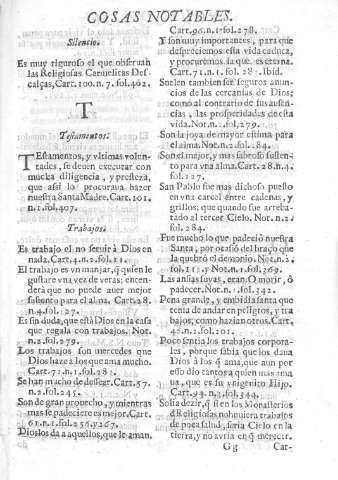 COSAS NOTABLES.
Silencio.
Es muy riguroso el que observan
las Religiosas Carmelitas Des
calças, Cart. 100. n. 7. fol. 402.
T
Testamentos.
TEstamentos, y vltimas volun-
tades, se deuen executar con
mucha diligencia, y presteza,
que assi lo procuraua hazer
nuestra Santa Madre. Cart. 101.
n. 1. fol. 407.
Trabajos.
Es trabajo el no seruir à Dios en
nada. Cart. 4. n. 2. fol. 11.
El trabajo es vn manjar, q̃ quien le
gustare vna vez de veras; enten-
derà que no puede auer mejor
sustento para el alma. Cart. 28.
n. 4. fol. 127.
Es sin duda, que està Dios en la casa
que regala con trabajos. Not.
n. 2. fol. 279.
Los trabajos son mercedes que
Dios haze à los que ama mucho.
Cart. 71. n. 1. fol. 281.
Se han mucho de dessear. Cart. 57.
n. 2. fol. 245.
Son de gran prouecho, y mientras
mas se padeciere es mejor. Cart.
61. n. 1. fol. 256. y 267.
Dios los dà a aquellos, que le aman.
Cart. 96. n. 1. fol. 278.
Y son muy importantes, para que
despreciemos esta vida caduca,
y procuremos la que es eterna.
Cart. 71. n. 1. fol. 28. Ibid.
Suelen tambien ser seguros anun-
cios de las cercanias de Dios;
como al contrario de sus ausen-
cias, las prosperidades de esta
vida. Not. n. fol. 279.
Son la joya de mayor estima para
el alma. Not. n. 2. fol. 284.
Son el mejor, y mas sabroso susten-
to para vna alma. Cart. 28. n. 4.
fol. 127.
San Pablo fue mas dichoso puesto
en vna carcel entre cadenas, y
grillos; que quando fue arreba-
tado al tercer Cielo. Not. n. 2.
fol. 284.
Fue mucho lo que padeciò nuestra
Santa; por ocasiō del braço que
la quebrò el demonio. Not. n.
fol. 217. y Not. n. fol. 269.
Las ansias suyas, eran. O morir, ò
padecer. Not. n. 1. fol. 342.
Pena grande, y embidia santa que
tenia de andar en peligros, y tra
bajos, como hazian otros. Cart.
46. n. 1. fol. 201.
Poco sentia los trabajos corpora-
les, porque sabia que los daua
Dios à los q̃ ama, que aun por
esso dio tantos a quien mas ama
ua, que es su vnigenito Hijo.
Cart. 94. n. 3. fol. 344.
Solia dezir, q̃ si en los Monasterios
d Religiosas no huuiera trabajos
de poca salud, seria Cielo en la
tierra, y no avria en q̃ merecer.
Gg Car-